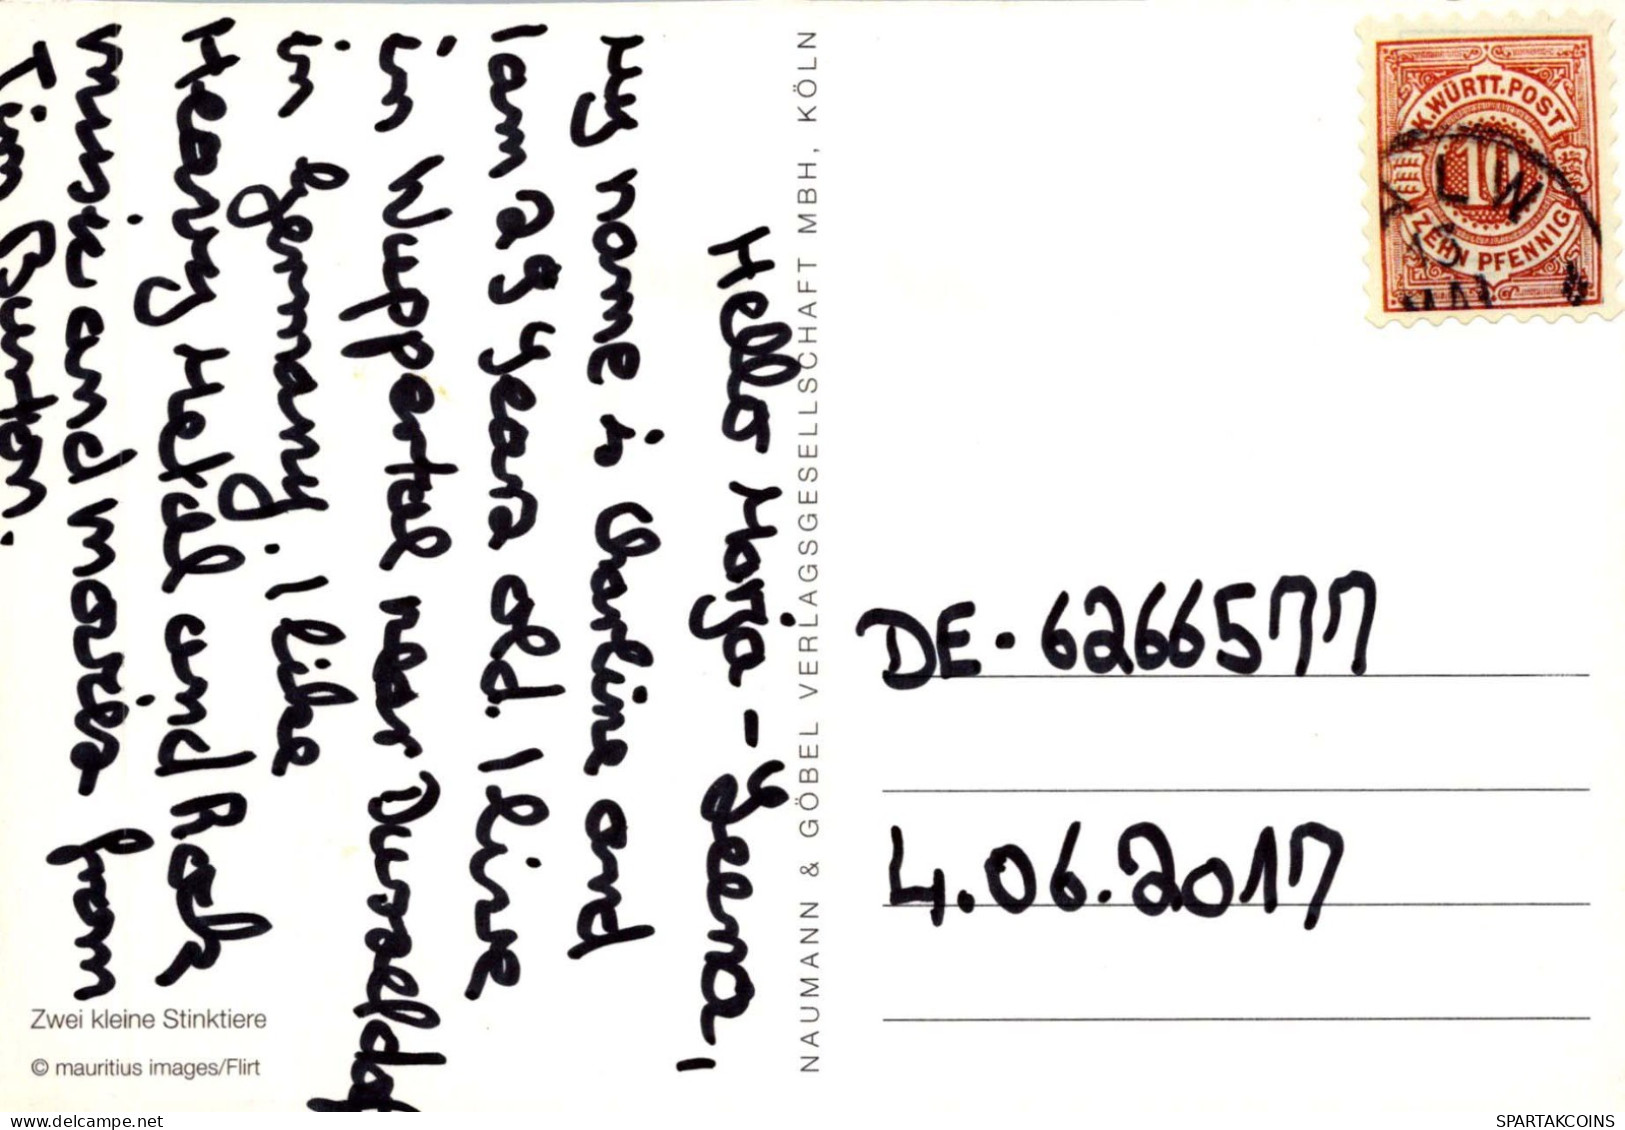 Hello Marja-Leena,
My name is Charline and
I am 28 years old. I live
in Wuppertal near Dusseldorf
in Germany. I like
Heavy Metal and Rock
music and movies from
Tim Burton.
Zwei kleine Stinktiere
© mauritius images/Flirt
NAUMANN & GÖBEL VERLAGSGESELLSCHAFT MBH, KÖLN
K.WÜRTT.POST
10
ZEHN PFENNIG
LW
MAI
DE-6266577
4.06.2017
SPARTAKCOINS